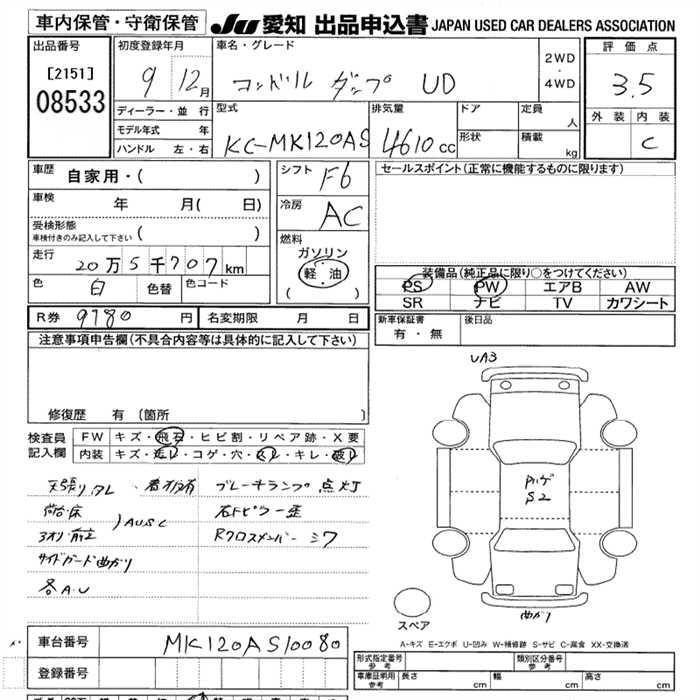 車内保管・守衛保管 JU 愛知 出品申込書 JAPAN USED CAR DEALERS ASSOCIATION
出品番号 初度登録年月 車名・グレード 2WD・4WD 評価点
[2151] 9 12月 コンドル ダンプ UD 3.5
08533
ディーラー・並行 型式 排気量 ドア 定員 外装 内装
モデル年式 年 人
ハンドル 左・右 KC-MK120AS 4610cc 形状 積載 kg C
車歴 自家用・( ) シフト F6 セールスポイント(正常に機能するものに限ります)
車検 年 月( 日) 冷房 AC
受検形態
車検付きのみ記入して下さい ( )
燃料
走行 20万5千707km ガソリン
軽油
( )
装備品(純正品に限り○をつけてください)
色 白 色替 色コード PS PW エアB AW
SR ナビ TV カワシート
R券 9780円 名変期限 月 日 新車保証書 有・無 後日品
注意事項申告欄(不具合内容等は具体的に記入して下さい)
UA3
修復歴 有(箇所
検査員 FW キズ・飛石・ヒビ割・リペア跡・X要
記入欄 内装 キズ・汚レ・コゲ・穴・スレ・キレ・破レ
天張リ,タレ ブレーキランプ点灯
荷台床 右ドビラ歪
アオリ前立 AUSC Rクロスメンバーシワ
サイドガード曲がり
各A.U
S2
曲がり
スペア
A-キズ E-エクボ U-凹み W-補修跡 S-サビ C-腐食 XX-交換済
車台番号 MK120AS10080
型式指定番号 参考 類別区分番号 参考
登録番号
車庫証明用 参考 長さ cm 幅 cm 高さ cm